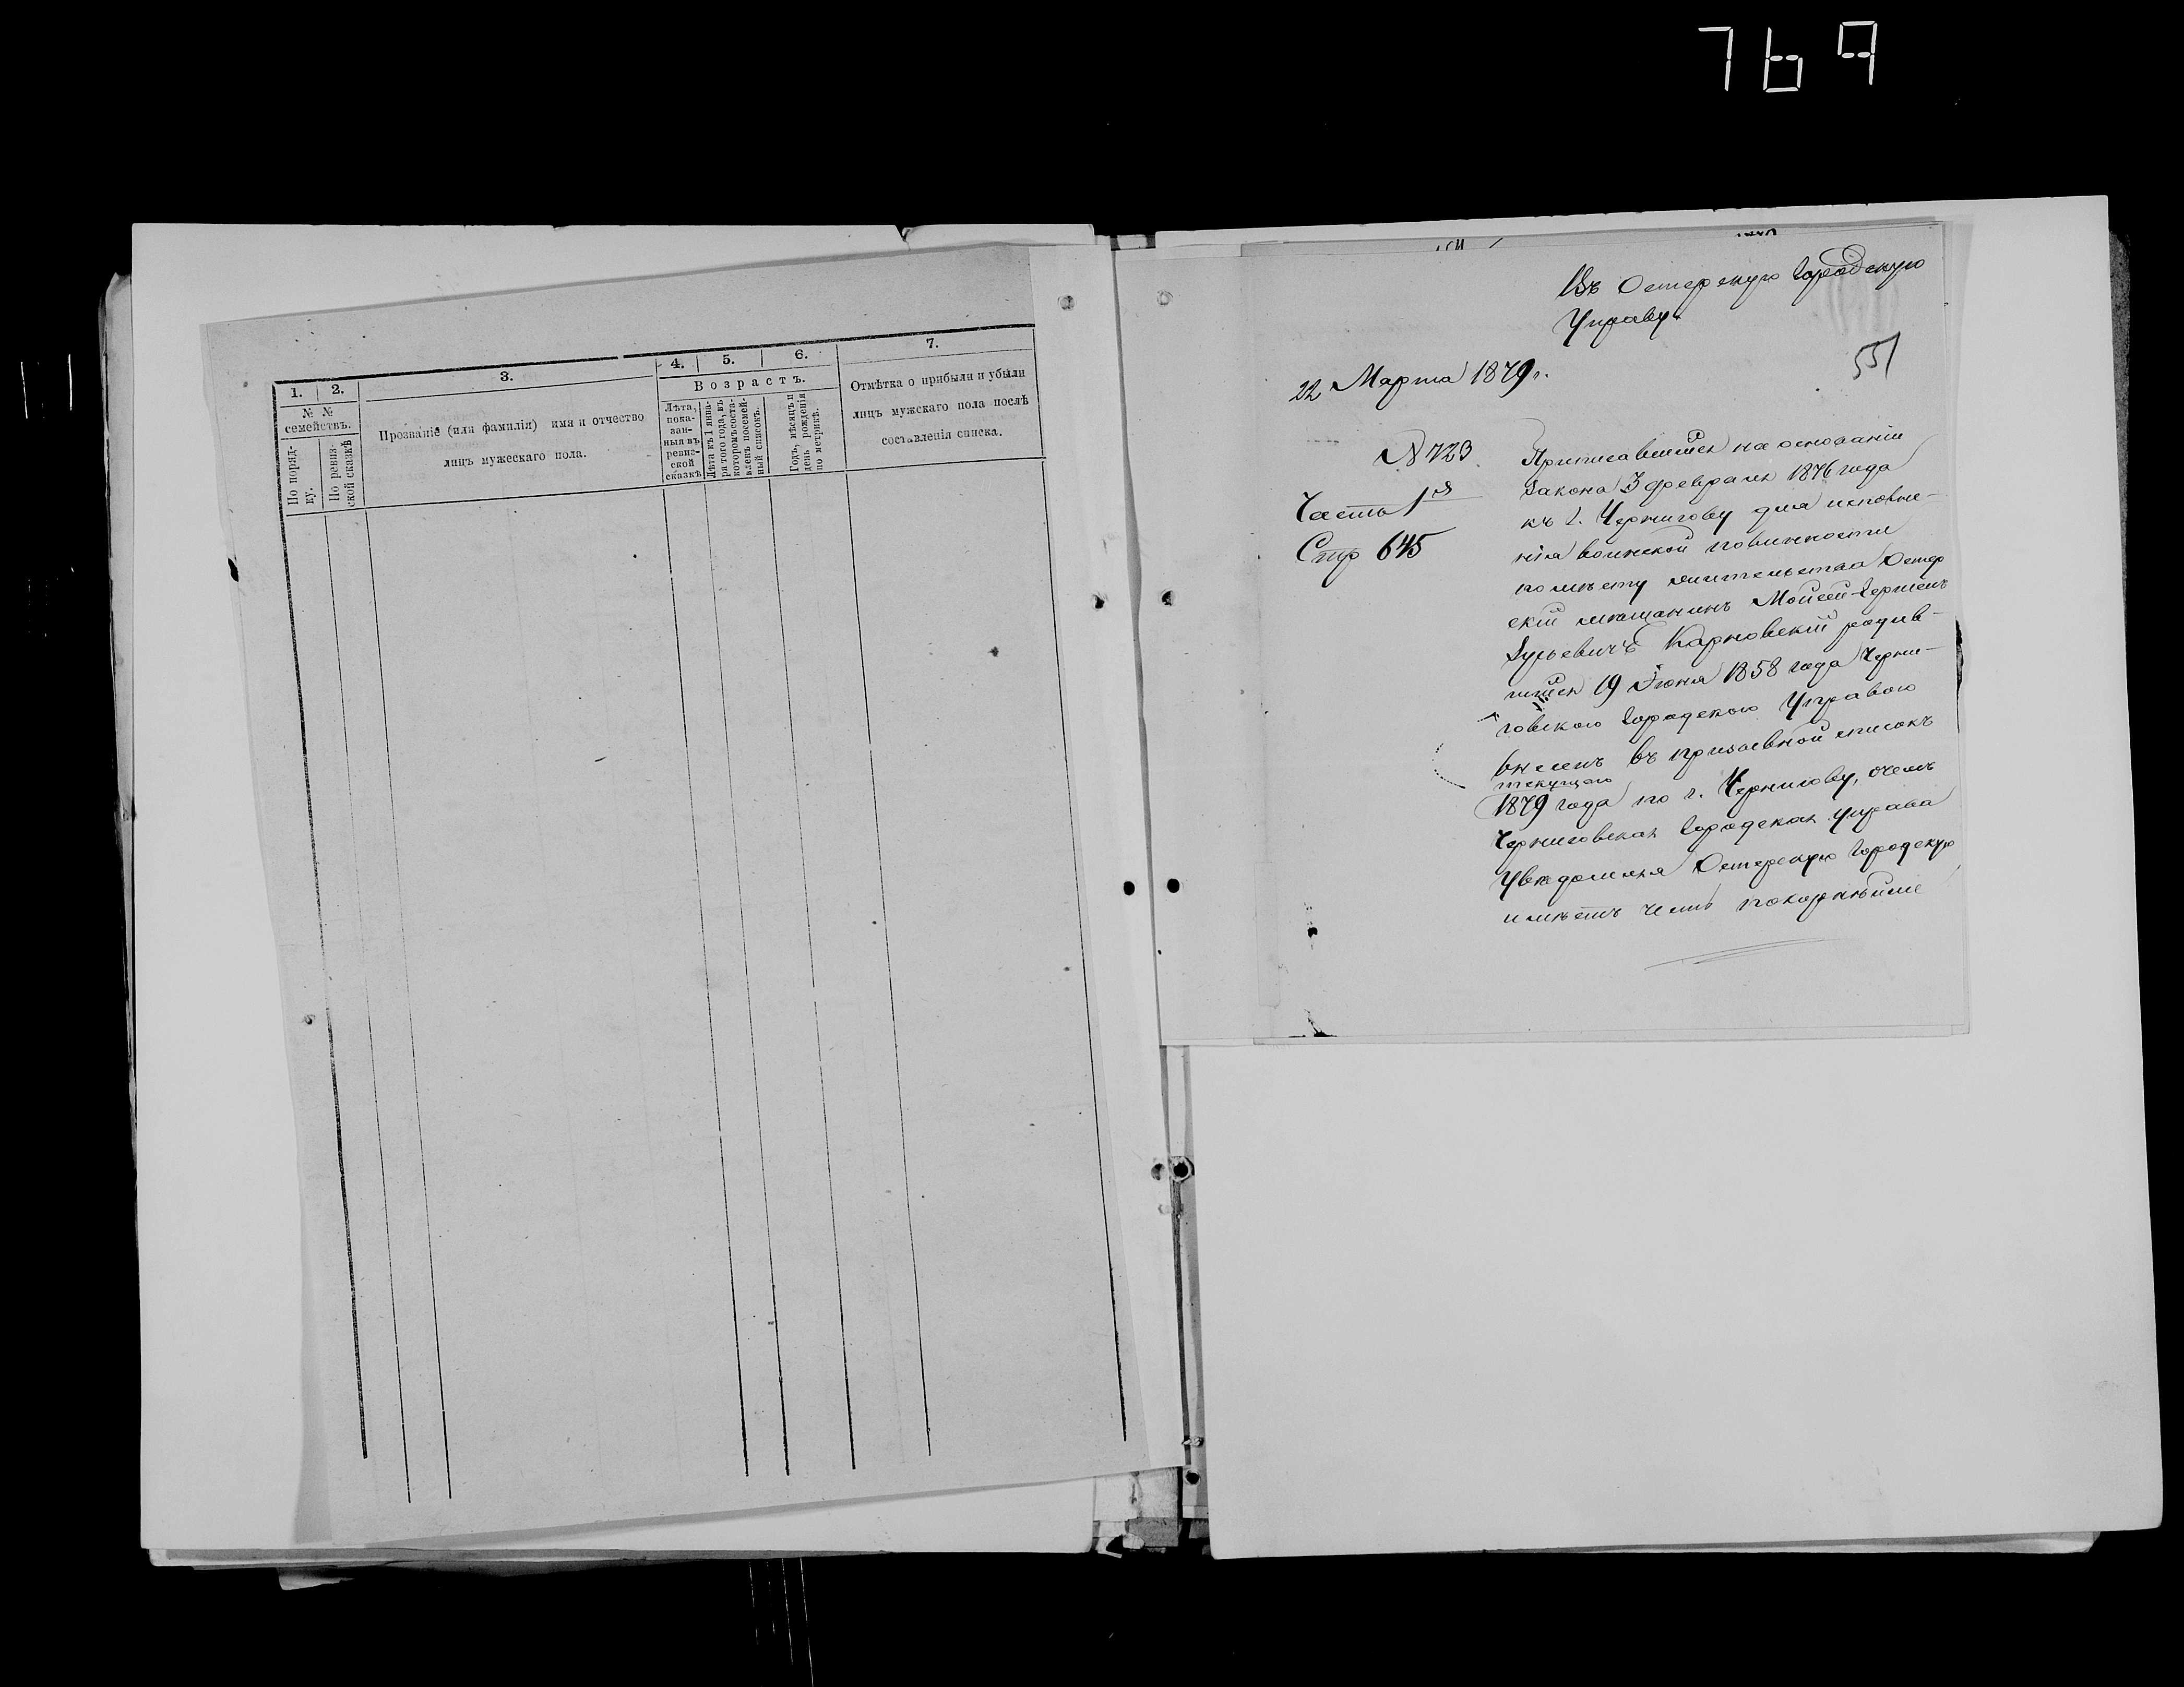 769
1.
2.
3.
4.
5.
6.
7.
№ №
семействъ.
По поряд-
ку.
По ревиз-
ской сказкѣ
Прозваніе (или фамилія) имя и отчество
лицъ мужескаго пола.
Возрастъ.
Лѣта,
пока-
зан-
ныя въ
ревиз-
ской
сказкѣ
Лѣта къ 1 янва-
ря того года, въ
которомъ соста-
вленъ посемей-
ный списокъ.
Годъ, мѣсяцъ и
день рожденія
по метрикѣ.
Отмѣтка о прибыли и убыли
лицъ мужскаго пола послѣ
составленія списка.
Въ Остерскую Городскую
Управу.
551
22 Марта 1879 г.
№ 723
Часть 1я
Стр 645
Приписавшійся на основаніи
закона 3 февраля 1876 года
къ г. Чернигову для исполне-
нія воинской повинности
по мѣсту жительства Остер
скій мѣщанинъ Мойсей-Гершенъ
Карновскій родив-
шійся 19 Іюня 1858 года Черни-
говскою Городскою Управою
внесенъ въ призывной списокъ
текущаго
1879 года по г. Чернигову, очемъ
Черниговская Городская управа
увѣдомляя Остерскую Городскую
имѣетъ честь покорнѣйше